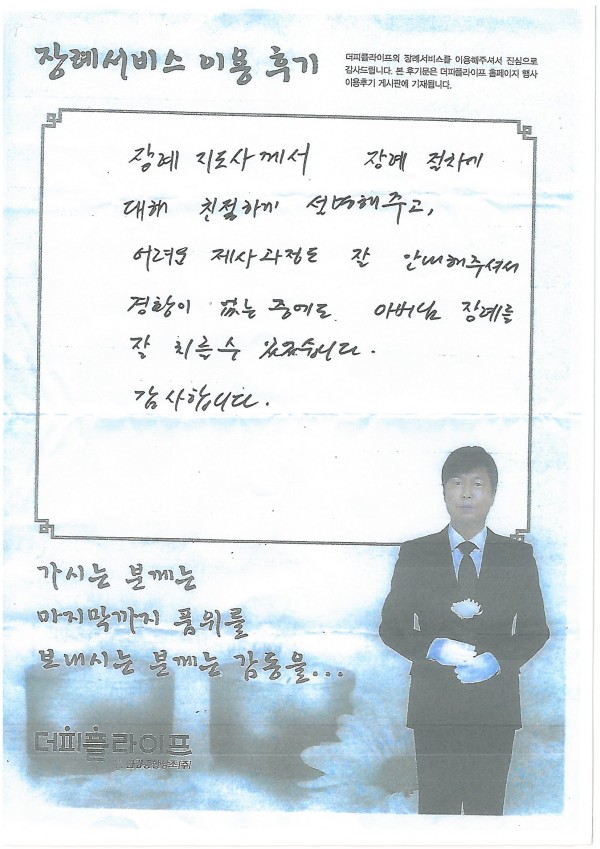 장례서비스 이용 후기
더피플라이프의 장례서비스를 이용해주셔서 진심으로
감사드립니다. 본 후기문은 더피플라이프 홈페이지 행사
이용후기 게시판에 기재됩니다.
장례 지도사께서 장례 절차에
대해 친절하게 설명해주고,
어려운 제사과정도 잘 안내해주셔서
경황이 없는 중에도 아버님 장례를
잘 치를수 있었습니다.
감사합니다.
가시는 분께는
마지막까지 품위를
보내시는 분께는 감동을...
더피플라이프